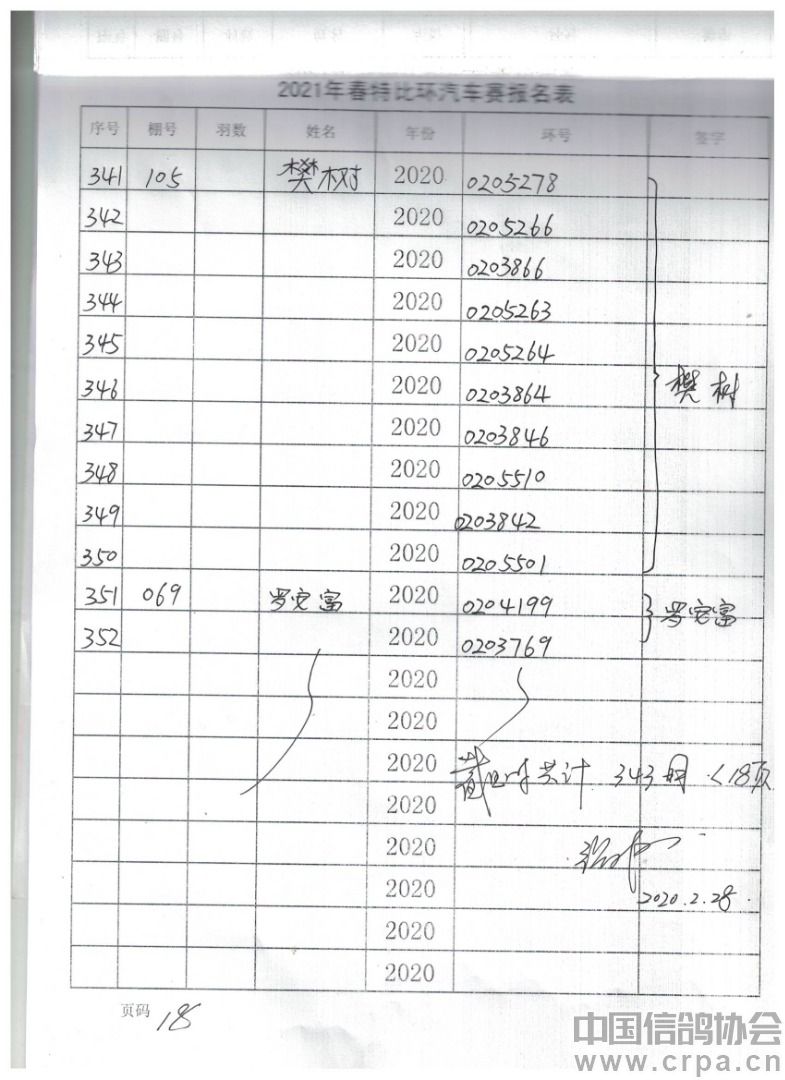 2021年春特比环汽车赛报名表
序号 棚号 羽数 姓名 年份 环号 签字
341 105 樊树 2020 0205278
342 2020 0205266
343 2020 0203866
344 2020 0205263
345 2020 0205264
346 2020 0203864 樊树
347 2020 0203846
348 2020 0205510
349 2020 0203842
350 2020 0205501
351 069 罗安富 2020 0204199 罗安富
352 2020 0203769
2020
2020
2020 截止 共计 343 羽 18页
2020
2020
2020 2020.2.28
2020
2020
页码 18
中国信鸽协会
www.crpa.cn